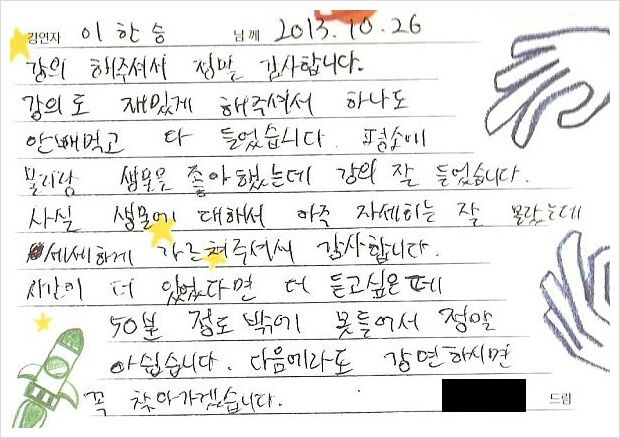 강연자 이한승 님께 2013.10.26
강의 해주셔서 정말 감사합니다.
강의도 재밌게 해주셔서 하나도
안빼먹고 다 들었습니다. 평소에
물리랑 생물은 좋아했는데 강의 잘 들었습니다.
사실 생물에 대해서 아주 자세히는 잘 몰랐는데
세세하게 가르쳐주셔서 감사합니다.
시간이 더 있었다면 더 듣고싶은데
50분 정도 밖에 못들어서 정말
아쉽습니다. 다음에라도 강연하시면
꼭 찾아가겠습니다. 드림